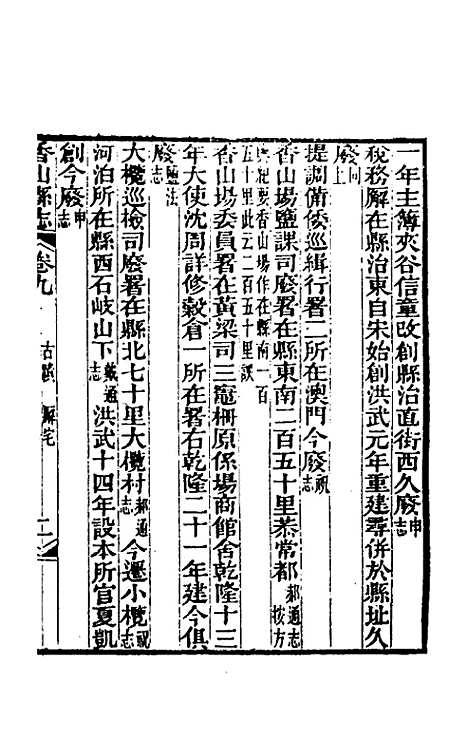 一年主簿夾谷信童改創縣治直街西久廢申志
稅務廨在縣治東自宋始創洪武元年重建尋併於縣址久
廢同上
提調備倭巡緝行署二所在澳門今廢祝志
香山場鹽課司廢署在縣東南二百五十里恭常都郝通志按方
輿紀要香山場作在縣南一百
五十里此云二百五十里誤
香山場委員署在黃梁司三竈柵原係場商館舍乾隆十三
年大使沈周詳修穀倉一所在署右乾隆二十一年建今俱
廢鹽法志
大欖巡檢司廢署在縣北七十里大欖村郝通志今遷小欖祝志
河泊所在縣西石岐山下戴通志洪武十四年設本所官夏凱
創今廢申志
香山縣志 卷九 古蹟 廨宅